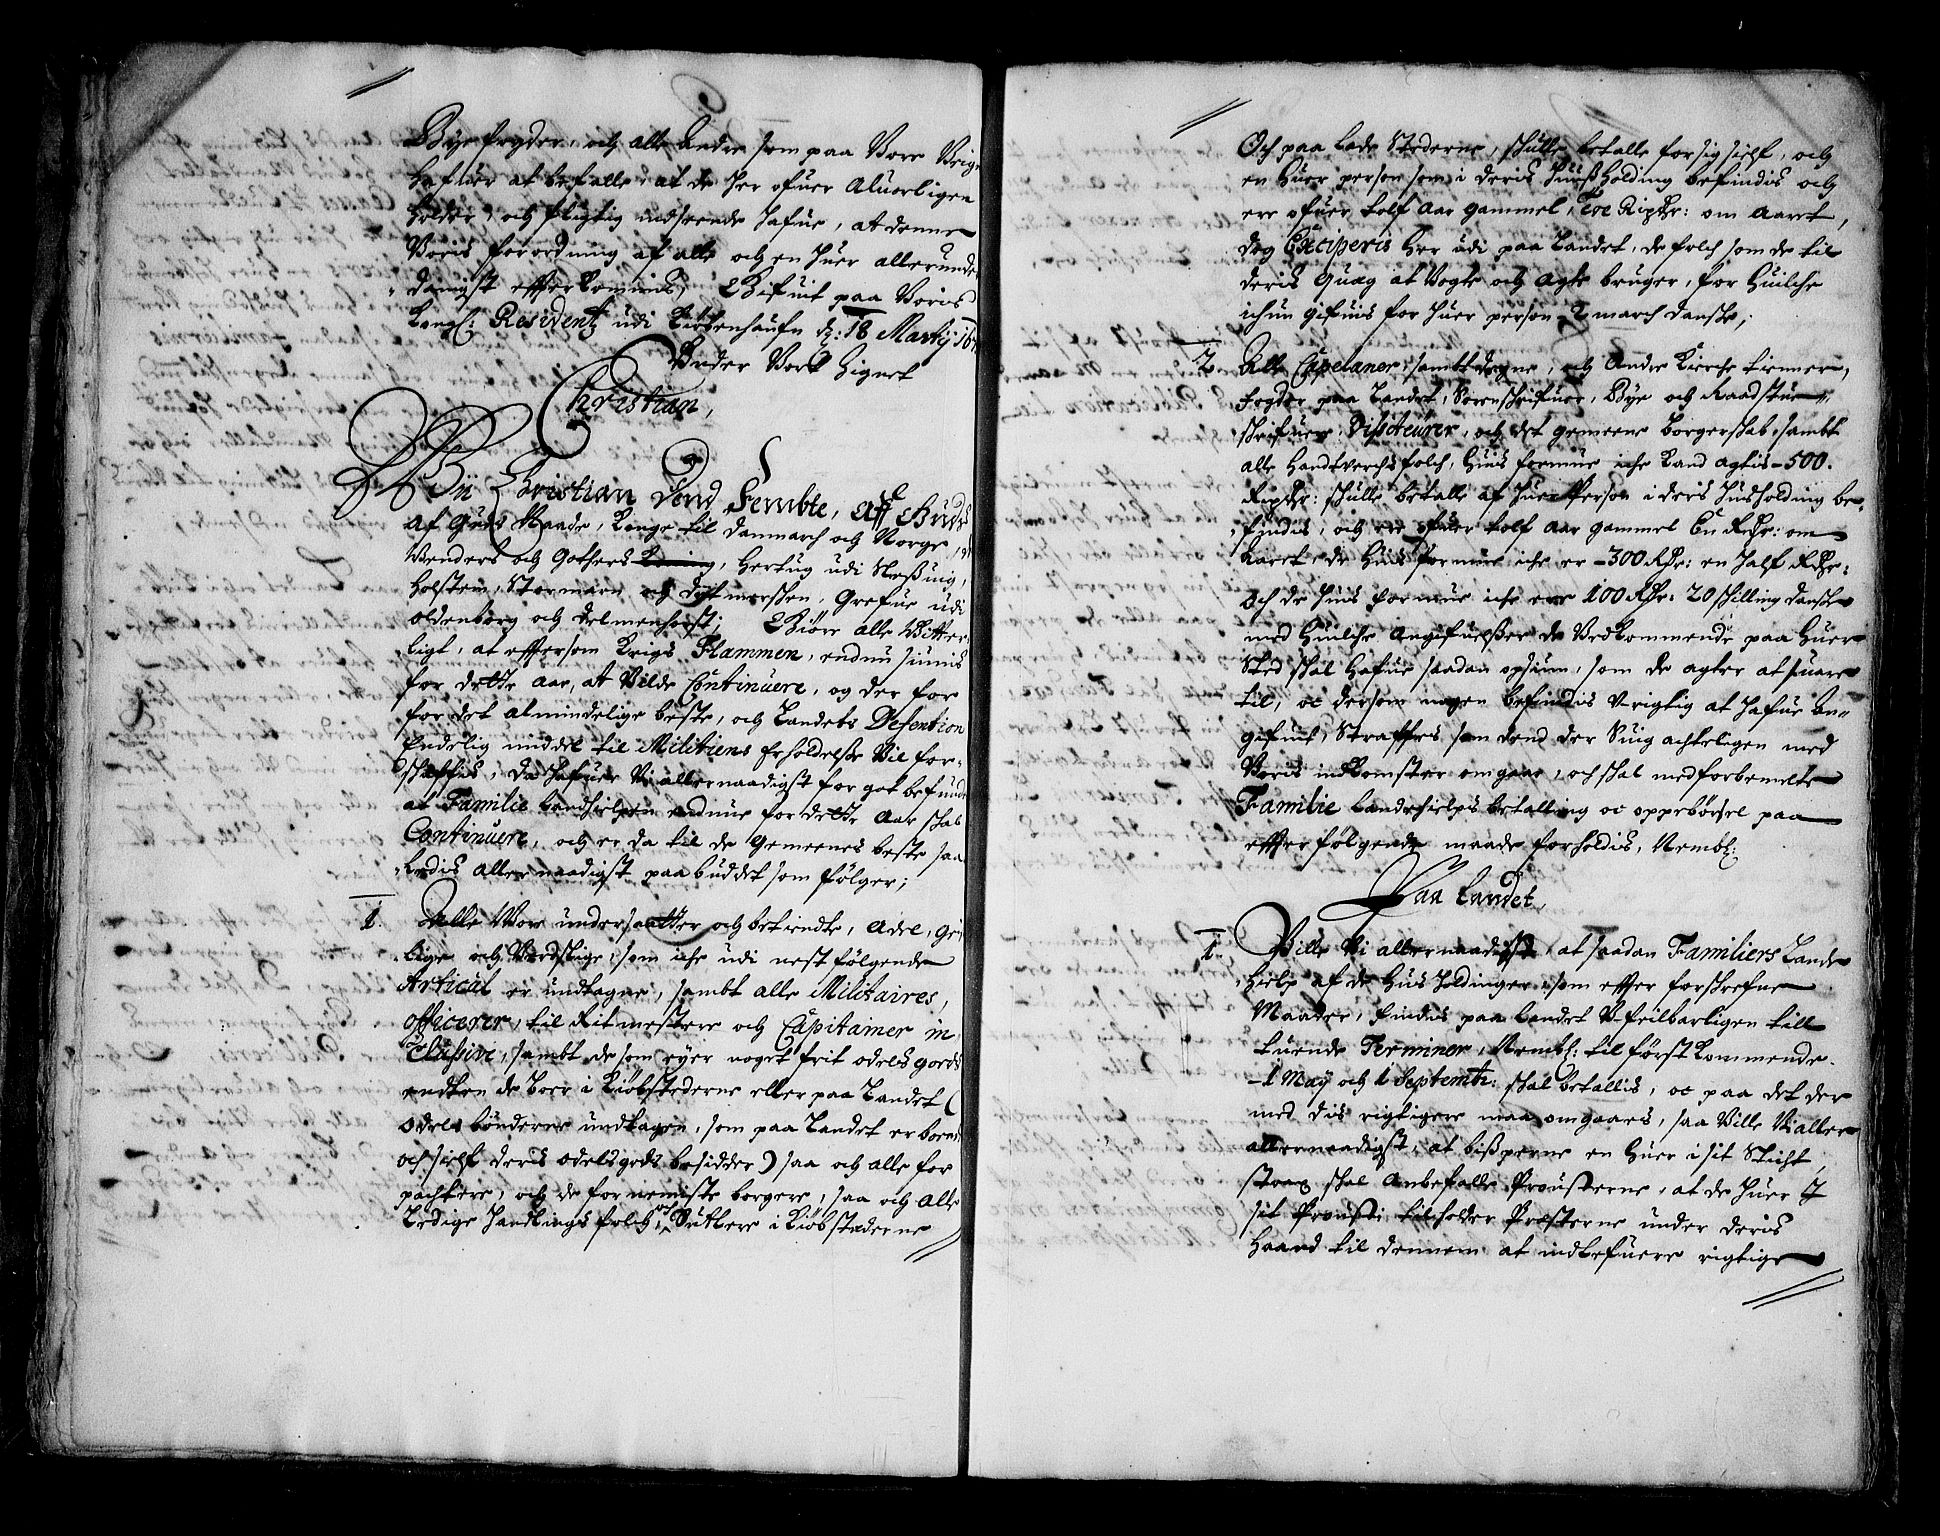 Bye fogder, och alle andre som paa Vore Veigne
Hafuer at befalle, at de her ofuer Aluorligen
holder, och flygtig indseende hafue, at denne
Voris forordning af alle och en huer allerunder
danigst efterkommis, Gifuit paa Voris
Kongl: Residentz udi Kiøbenhaufn d: 18 Martij 167
Under Vort Signet
Christian,
Vii Christian Dend Fembte, Aff Guds
af Guds Naade, Konge til Danmarch och Norge,
Venders och Gothers Konning, Hertug udi Sleßuig,
Holstein, Stormarn och Dytmerschen, Grefue udi
Oldenborg och Delmenhorst; Giøre alle Vitter-
ligt, at effersom Krigs Flammen, endnu siunis
for dette Aar, at Vilde Continuere, og der for
for det almindelige beste, och Landets Defention
Endelig middel til Militiens Erholdelse Vil for-
schaffis, da hafuer Vi allernaadigst for got befundet
at Familie Landhielpen endnue for dette Aar schal
Continuere, och er da til de gemeenes beste saa
ledis allernaadigst paabuddet som følger;
1. Alle Vore undersaatter och betiendte, Adel, Gei
lige och Verdslige, som iche udi nest følgende
Articul er undtagne, sambt alle Militaires,
officerer, til Ritmestere och Capitainer in
Clusive, sambt de som eyer noget frit odels gods
endten de boer i Kiøbstederne eller paa Landet (
odels bønderne undtagen, som paa Landet er boende
och sielf deris odelsgods besidder) saa och alle for
pachtere, och de fornemste borgere, saa och alle
Ledige Handlings folch, och Sutlere i Kiøbstæderne
Och paa Lade Stederne, schulle betalle for sig sielf, och
en Huer person som i deris Huußholding befindis och
ere ofuer tolf Aar gammel, Toe Rixdr: om Aaret,
dog Exciperis her udi paa Landet, de folch som de til
deris Quæg at Vogte och Agte bruger, for Huilche
ichun gifuis for huer person 2 march Dansche;
2 Alle Capelaner, sambt degne, och Andre Kirche tiennere,
Fogder paa Landet, Sorenschrifuer, Bye och Raadstue
schrifuere, Visiteurer, och det gemeene borgerschab sambt
alle Handtverchs folch, Huis formue iche Kand agtis 500.
Rixdr: schulle betalle af huer Person i deris Husholding be-
findis, och ere ofuer tolf Aar gammel En Rdr: om
Aaret, de Huis formue iche er 300 Rdr: en half Rdr:
och de huis formue iche ere 100 Rdr: 20 schilling dansche
med Huilche Angifuelßer de Vedkommende paa Huer
Sted schal Hafue saadan opsiun, som de agter at suare
til, oc dersom nogen befindis Urigtig at hafue An-
gifuit, Straffes som dend der Suigachteligen med
Voris indkomster omgaar, och schal med forbemelte
Familie Landehielps betalling oc oppebørsel paa
effterfølgende maade forholdis, Nembl:
Paa Landet,
1. Ville Vi allernaadigst, at saadan Familiers Lande
Hielp af de Husholdinger, som effter forschrefne
Maader, findis paa Landet Ufeilbarligen till
tuende Terminer, Nembl: til først Kommende
1 Maÿ och 1 Septembr: schal betallis, oc paa det der
med dis rigtigere maa omgaaes, saa Ville Vi aller
allernaadigst, at bißperne en Huer i sit Sticht
strax schal Anbefalle Prousterne, at de huer I
sit Prousti tilholder Præsterne under deris
Haand til dennem at indlefuere rigtige